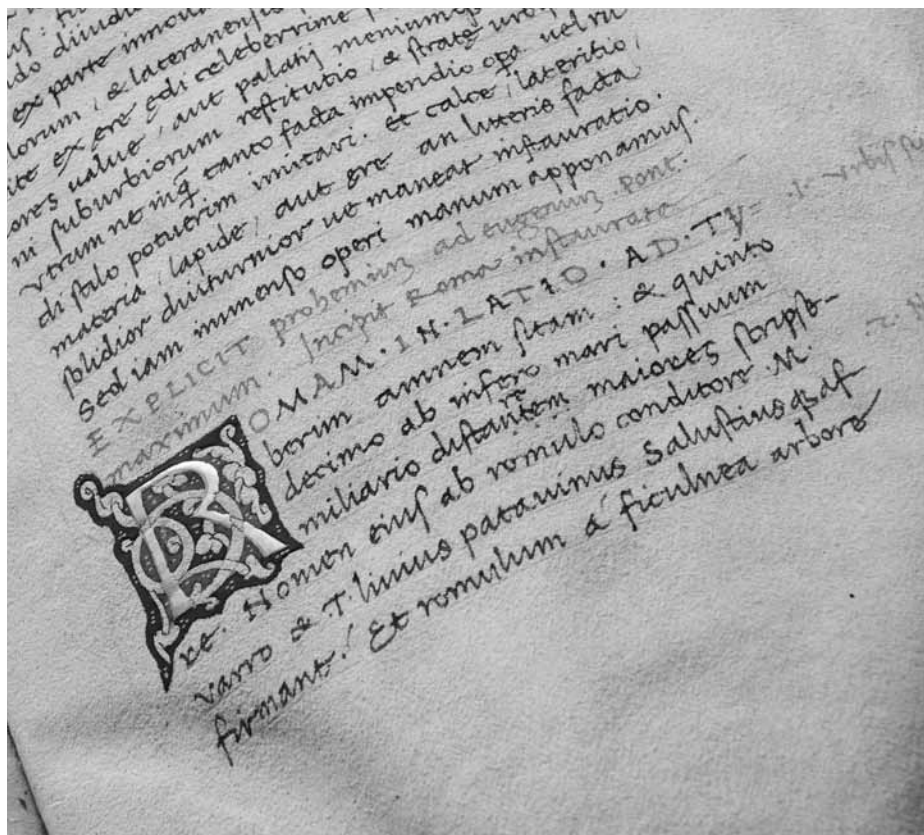 ex parte
lorum, & lateranensis
ex ere edi celeberrime
ualue, aut palatij
ni ſuburbiorum reſtitutio, & ſtrate
Vtrum ne tanto facta impendio opa uel ru
di ſtilo potuerim imitari. et calce, lateritio,
materia, lapide, aut ere an litteris facta
ſolidior diuturnior ue maneat inſtauratio.
Sed iam immenſo operi manum apponamuſ.
EXPLICIT prohemium ad eugenium pont.
maximum. Incipit Roma inſtaurata
ROMAM·IN·LATIO·AD·TY- .1. Vrbiſ
berim amnem ſitam: & quinto
decimo ab infero mari paſſuum
miliario diſtantem maiores ſcripſe-
re. Nomen eiuſ ab romulo conditore M. .2.
varro & T. liuius patauinus Saluſtiusq; af
firmant. Et romulum á ficulnea arbore